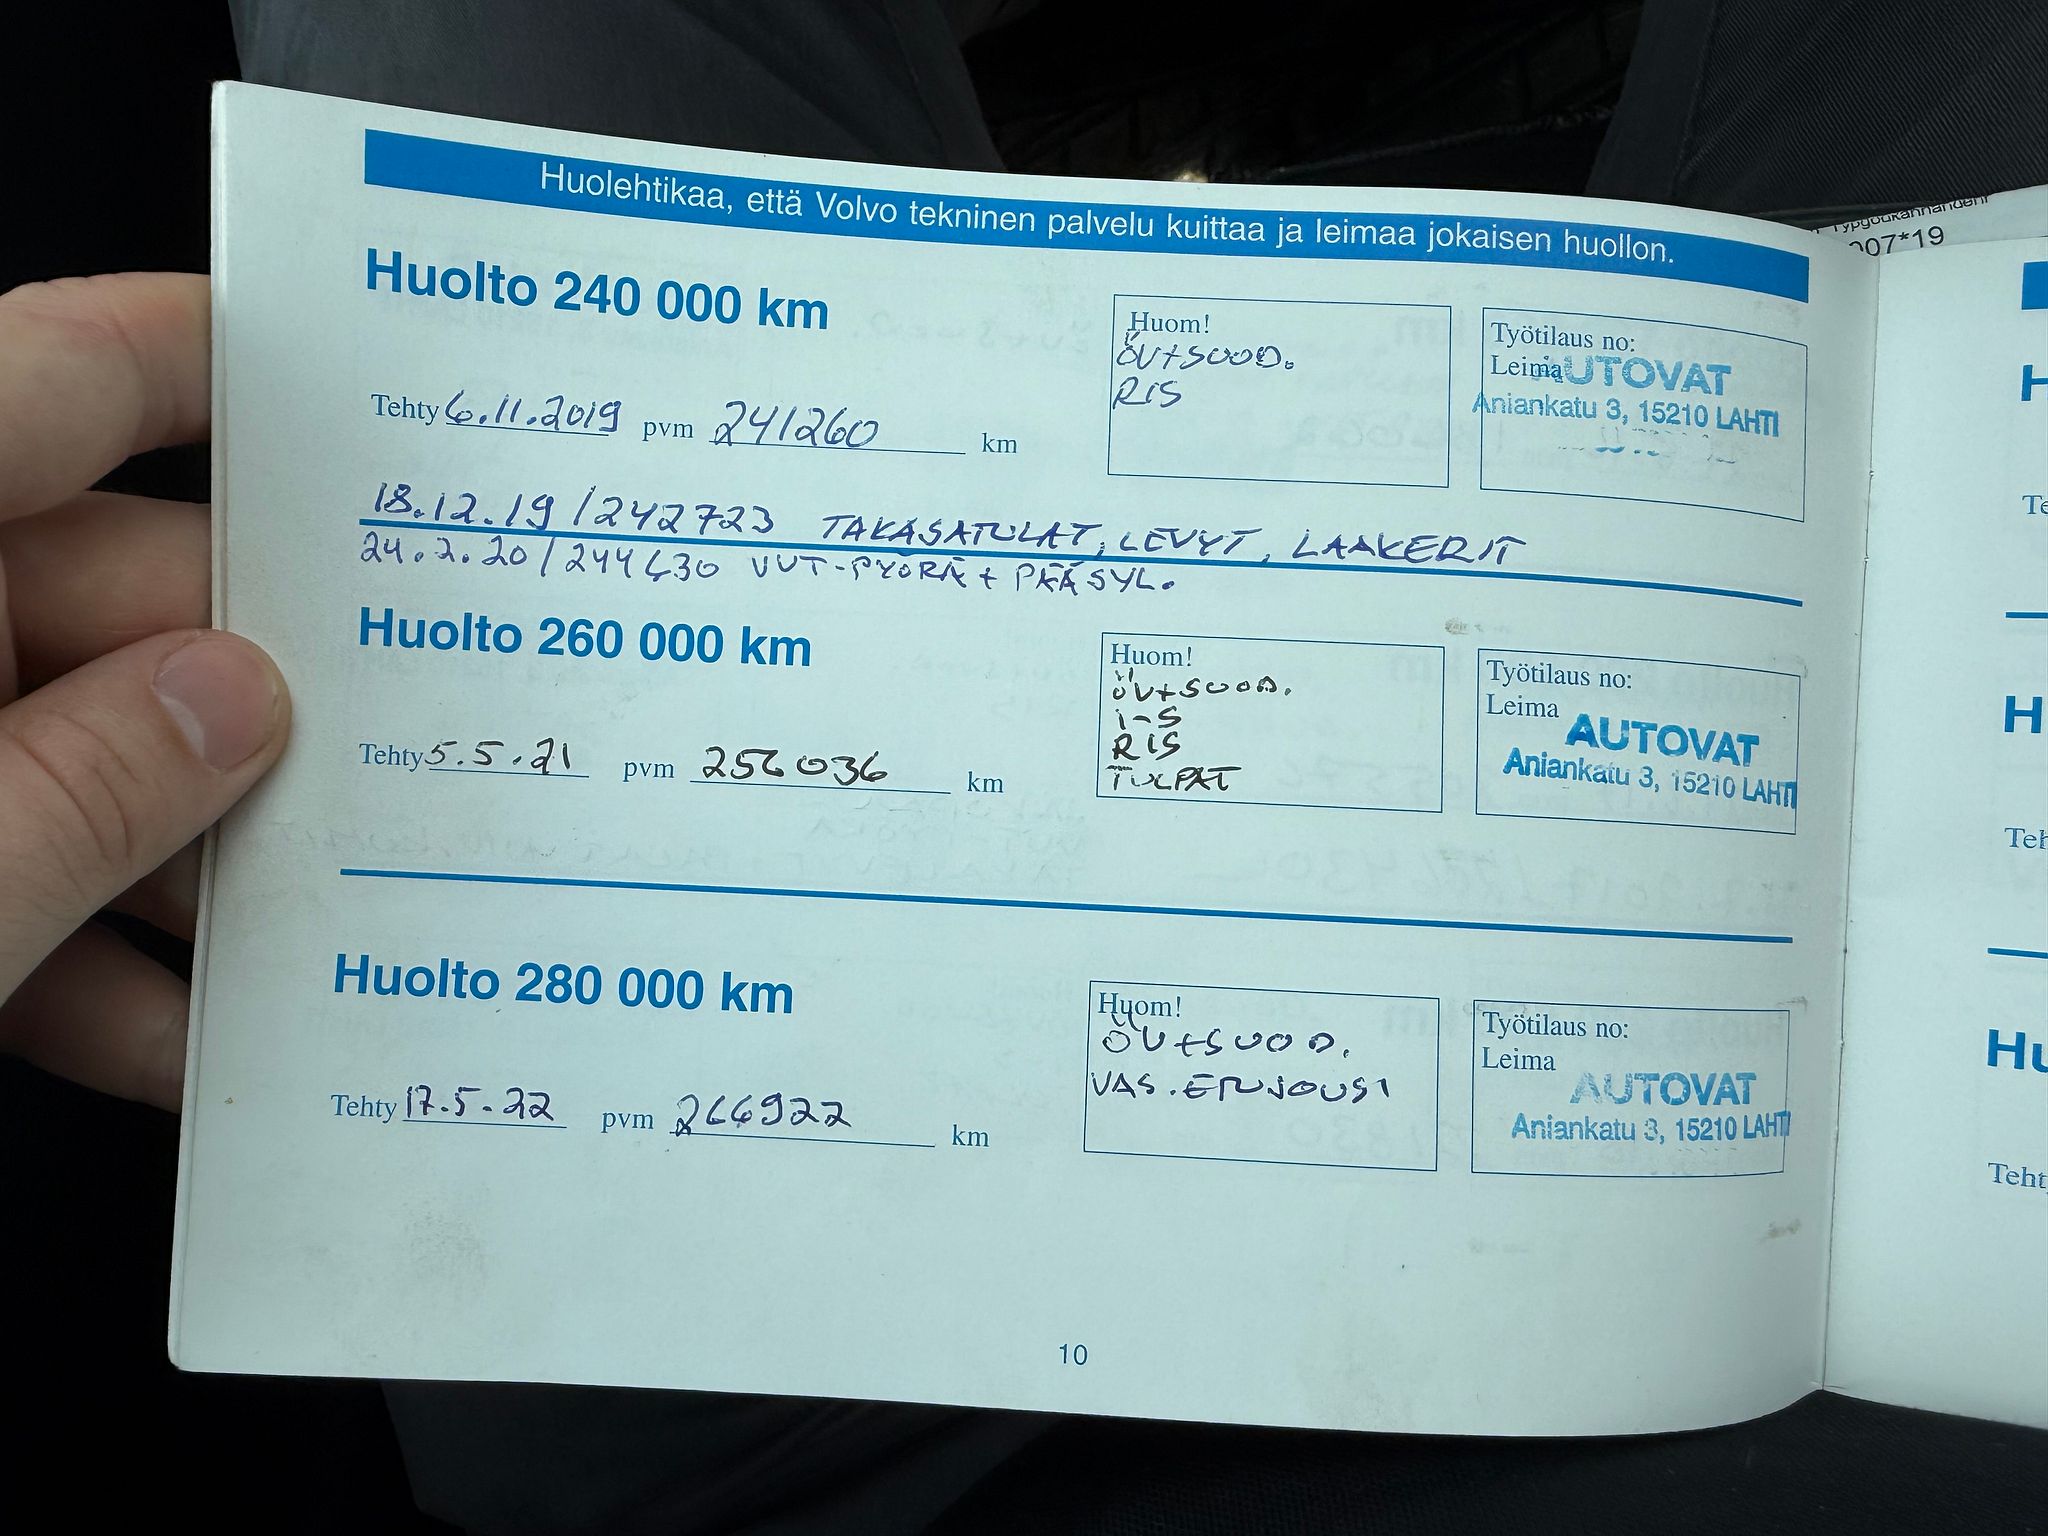 Huolehtikaa, että Volvo tekninen palvelu kuittaa ja leimaa jokaisen huollon.
007*19
Huolto 240 000 km
Huom!
ÖV+SUOD.
RIS
Työtilaus no:
Leima
AUTOVAT
Aniankatu 3, 15210 LAHTI
Tehty 6.11.2019 pvm 241260 km
18.12.19 / 242723 TAKASATULAT, LEVYT, LAAKERIT
24.2.20 / 244630 VUT-PYÖRÄ + PÄÄSYL.
Huolto 260 000 km
Huom!
ÖV+SUOD.
I-S
RIS
TULPAT
Työtilaus no:
Leima
AUTOVAT
Aniankatu 3, 15210 LAHTI
Tehty 5.5.21 pvm 256036 km
Huolto 280 000 km
Huom!
ÖV+SUOD.
VAS. ETUJOUSI
Työtilaus no:
Leima
AUTOVAT
Aniankatu 3, 15210 LAHTI
Tehty 17.5.22 pvm 266922 km
10